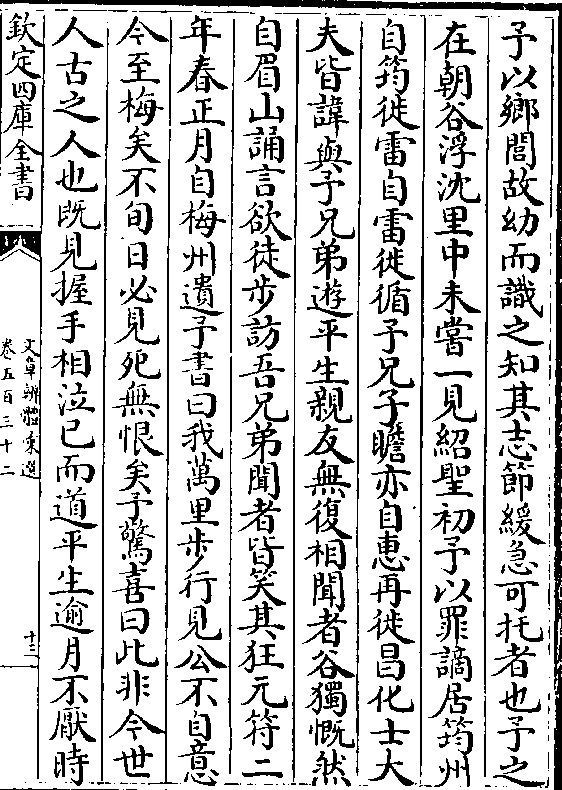 予以鄉閭故幼而識之知其志節緩急可托者也予之
在朝谷浮沈里中未嘗一見紹聖初予以罪謫居筠州
自筠徙雷自雷徙循予兄子瞻亦自惠再徙昌化士大
夫皆諱與予兄弟遊平生親友無復相聞者谷獨慨然
自眉山誦言欲徒步訪吾兄弟聞者皆笑其狂元符二
年春正月自梅州遺予書曰我萬里步行見公不自意
今至梅矣不旬日必見死無恨矣予驚喜曰此非今世
人古之人也既見握手相泣已而道平生逾月不厭時
欽定四庫全書
文章辨體彙選
卷五百三十二
十三